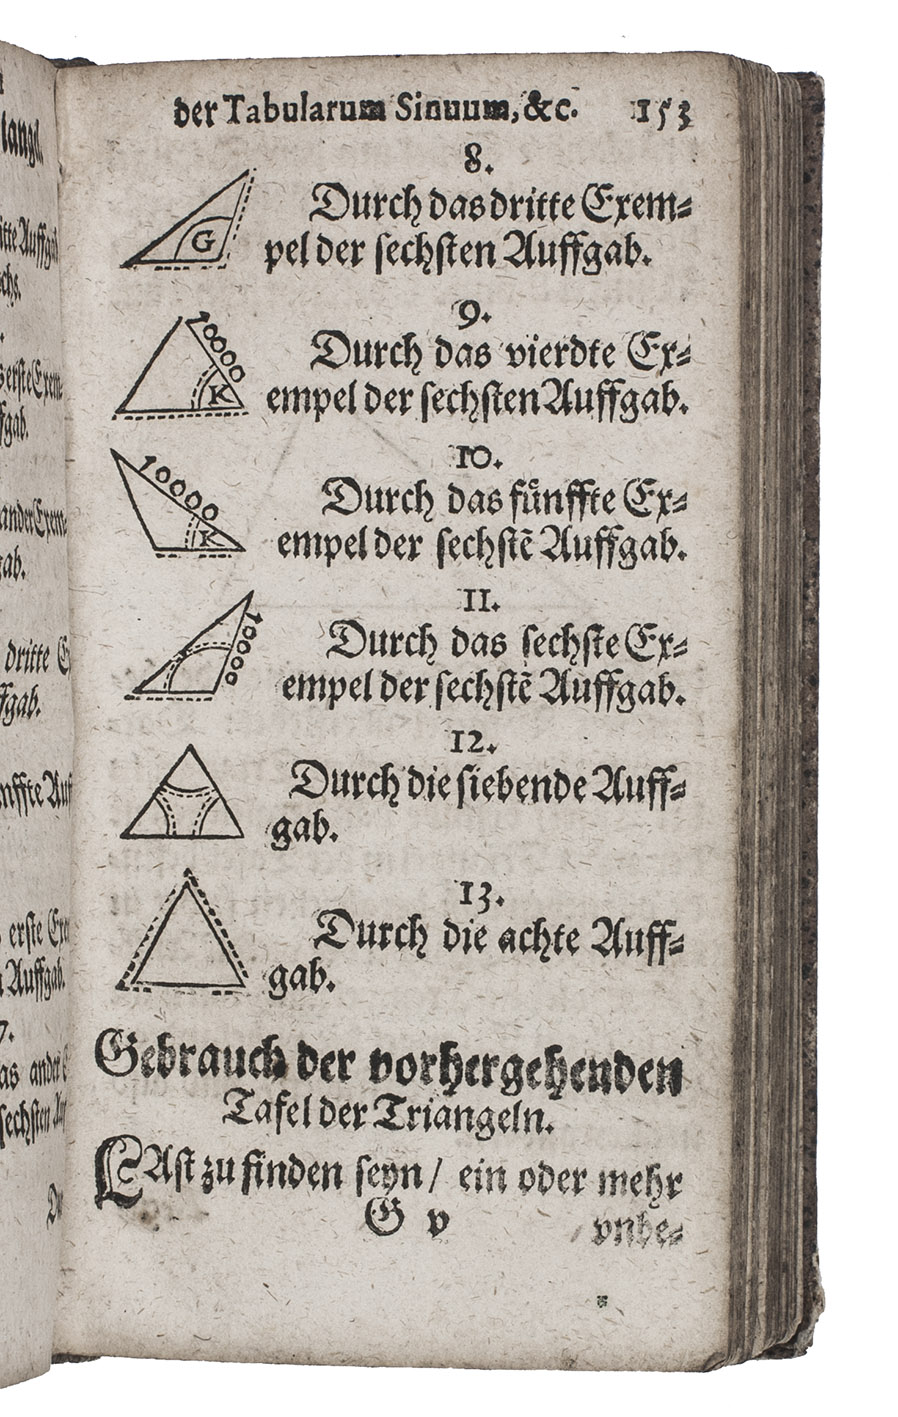 der Tabularum Sinuum, &c. 153
8.
Durch das dritte Exem⸗
pel der sechsten Auffgab.
G
9.
Durch das vierdte Ex⸗
empel der sechsten Auffgab.
10000
K
10.
Durch das fůnffte Ex⸗
empel der sechstẽ Auffgab.
10000
K
11.
Durch das sechste Ex⸗
empel der sechstẽ Auffgab.
10000
12.
Durch die siebende Auff⸗
gab.
13.
Durch die achte Auff⸗
gab.
Gebrauch der vorhergehenden
Tafel der Triangeln.
LAst zu finden seyn / ein oder mehr
G v
vnbe⸗